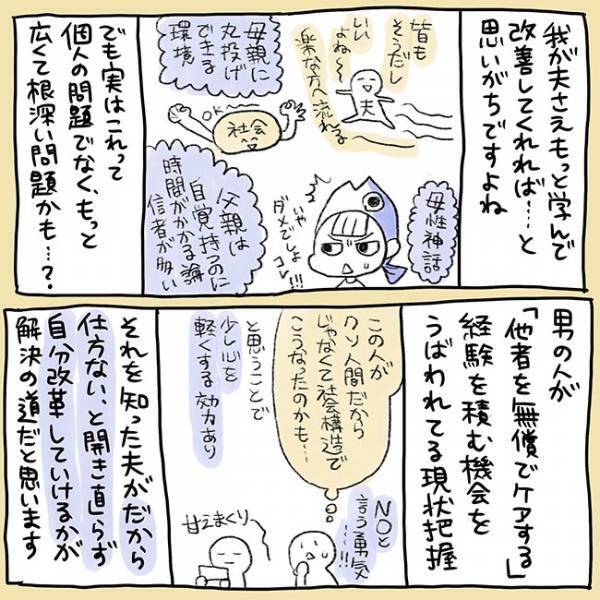 我が夫さえもっと学んで
改善してくれれば……と
思いがちですよね
皆も
そうだし
いい
よね〜
楽な方へ流れる
夫
母親に
丸投げ
できる
環境
OK〜
社会
母性神話
いや
ダメでしょ
コレ!!!
父親は
自覚持つのに
時間がかかる論
信者が多い
でも実はこれって
個人の問題でなく、もっと
広くて根深い問題かも…?
男の人が
「他者を無償でケアする」
経験を積む機会を
うばわれてる現状把握
この人が
クソ人間だから
じゃなくて社会構造で
こうなったのかも…
と思うことで
少し心を
軽くする効力あり
NOと
言う勇気…!!
甘えまくり
それを知った夫がだから
仕方ない、と開き直らず
自分改革していけるかが
解決の道だと思います